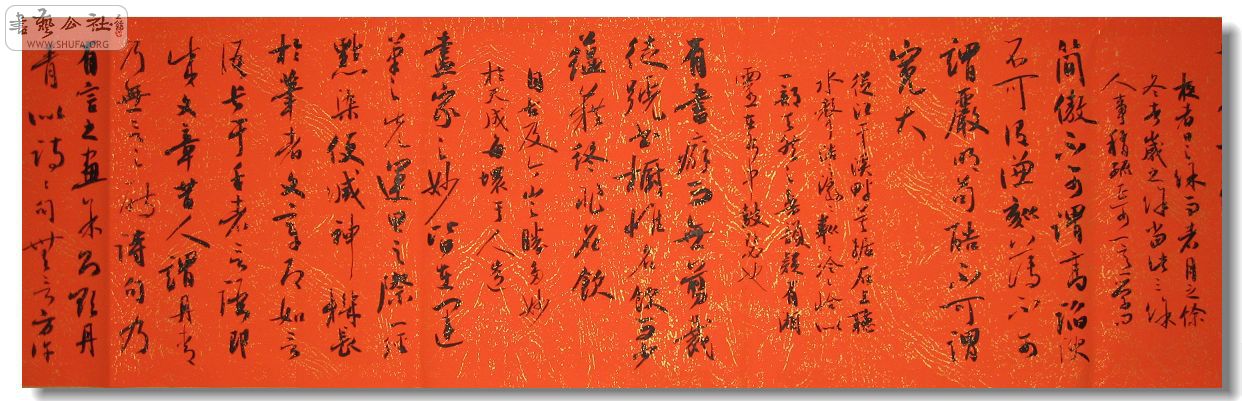 夜者日之餘雨者月之餘
冬者歲之餘當此三餘
人事稍疏正可一意學問
簡傲不可謂高諂諛
不可謂謙刻薄不可
謂嚴明不可謂
寬大
從江干溪畔箕踞石上聽
水聲浩浩潺潺粼粼泠泠恰似
一部天然之樂韻疑有湘
靈在水中鼓瑟也
有書癖而無剪裁
徒號書櫥惟名飲無
蘊藉終非名飲
自古及今山之勝多妙
於天成每壞于人造
畫家之妙皆在運
筆之先運思之際一經
點染便減神機長
於筆者文章即如言
語長于舌者言語即
成文章昔人謂丹青
乃無言之詩詩句乃
有言之畫余則欲丹
青似詩詩句無言方許
書藝公社
WWW.SHUFA.ORG